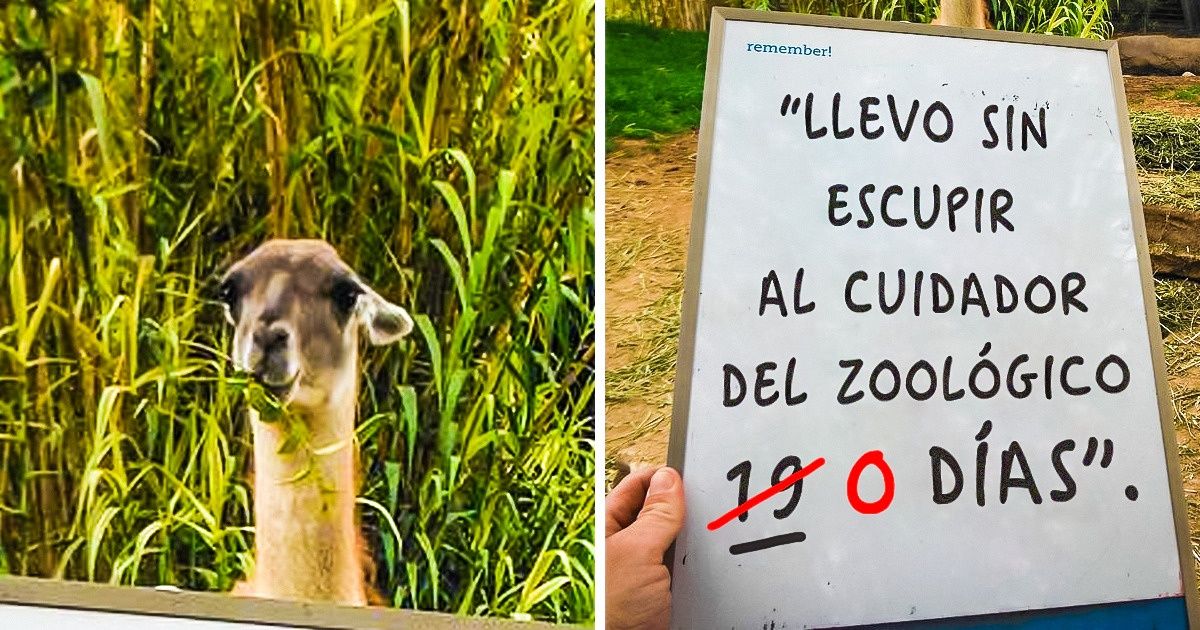 remember!
“LLEVO SIN
ESCUPIR
AL CUIDADOR
DEL ZOOLÓGICO
19 0 DÍAS”.